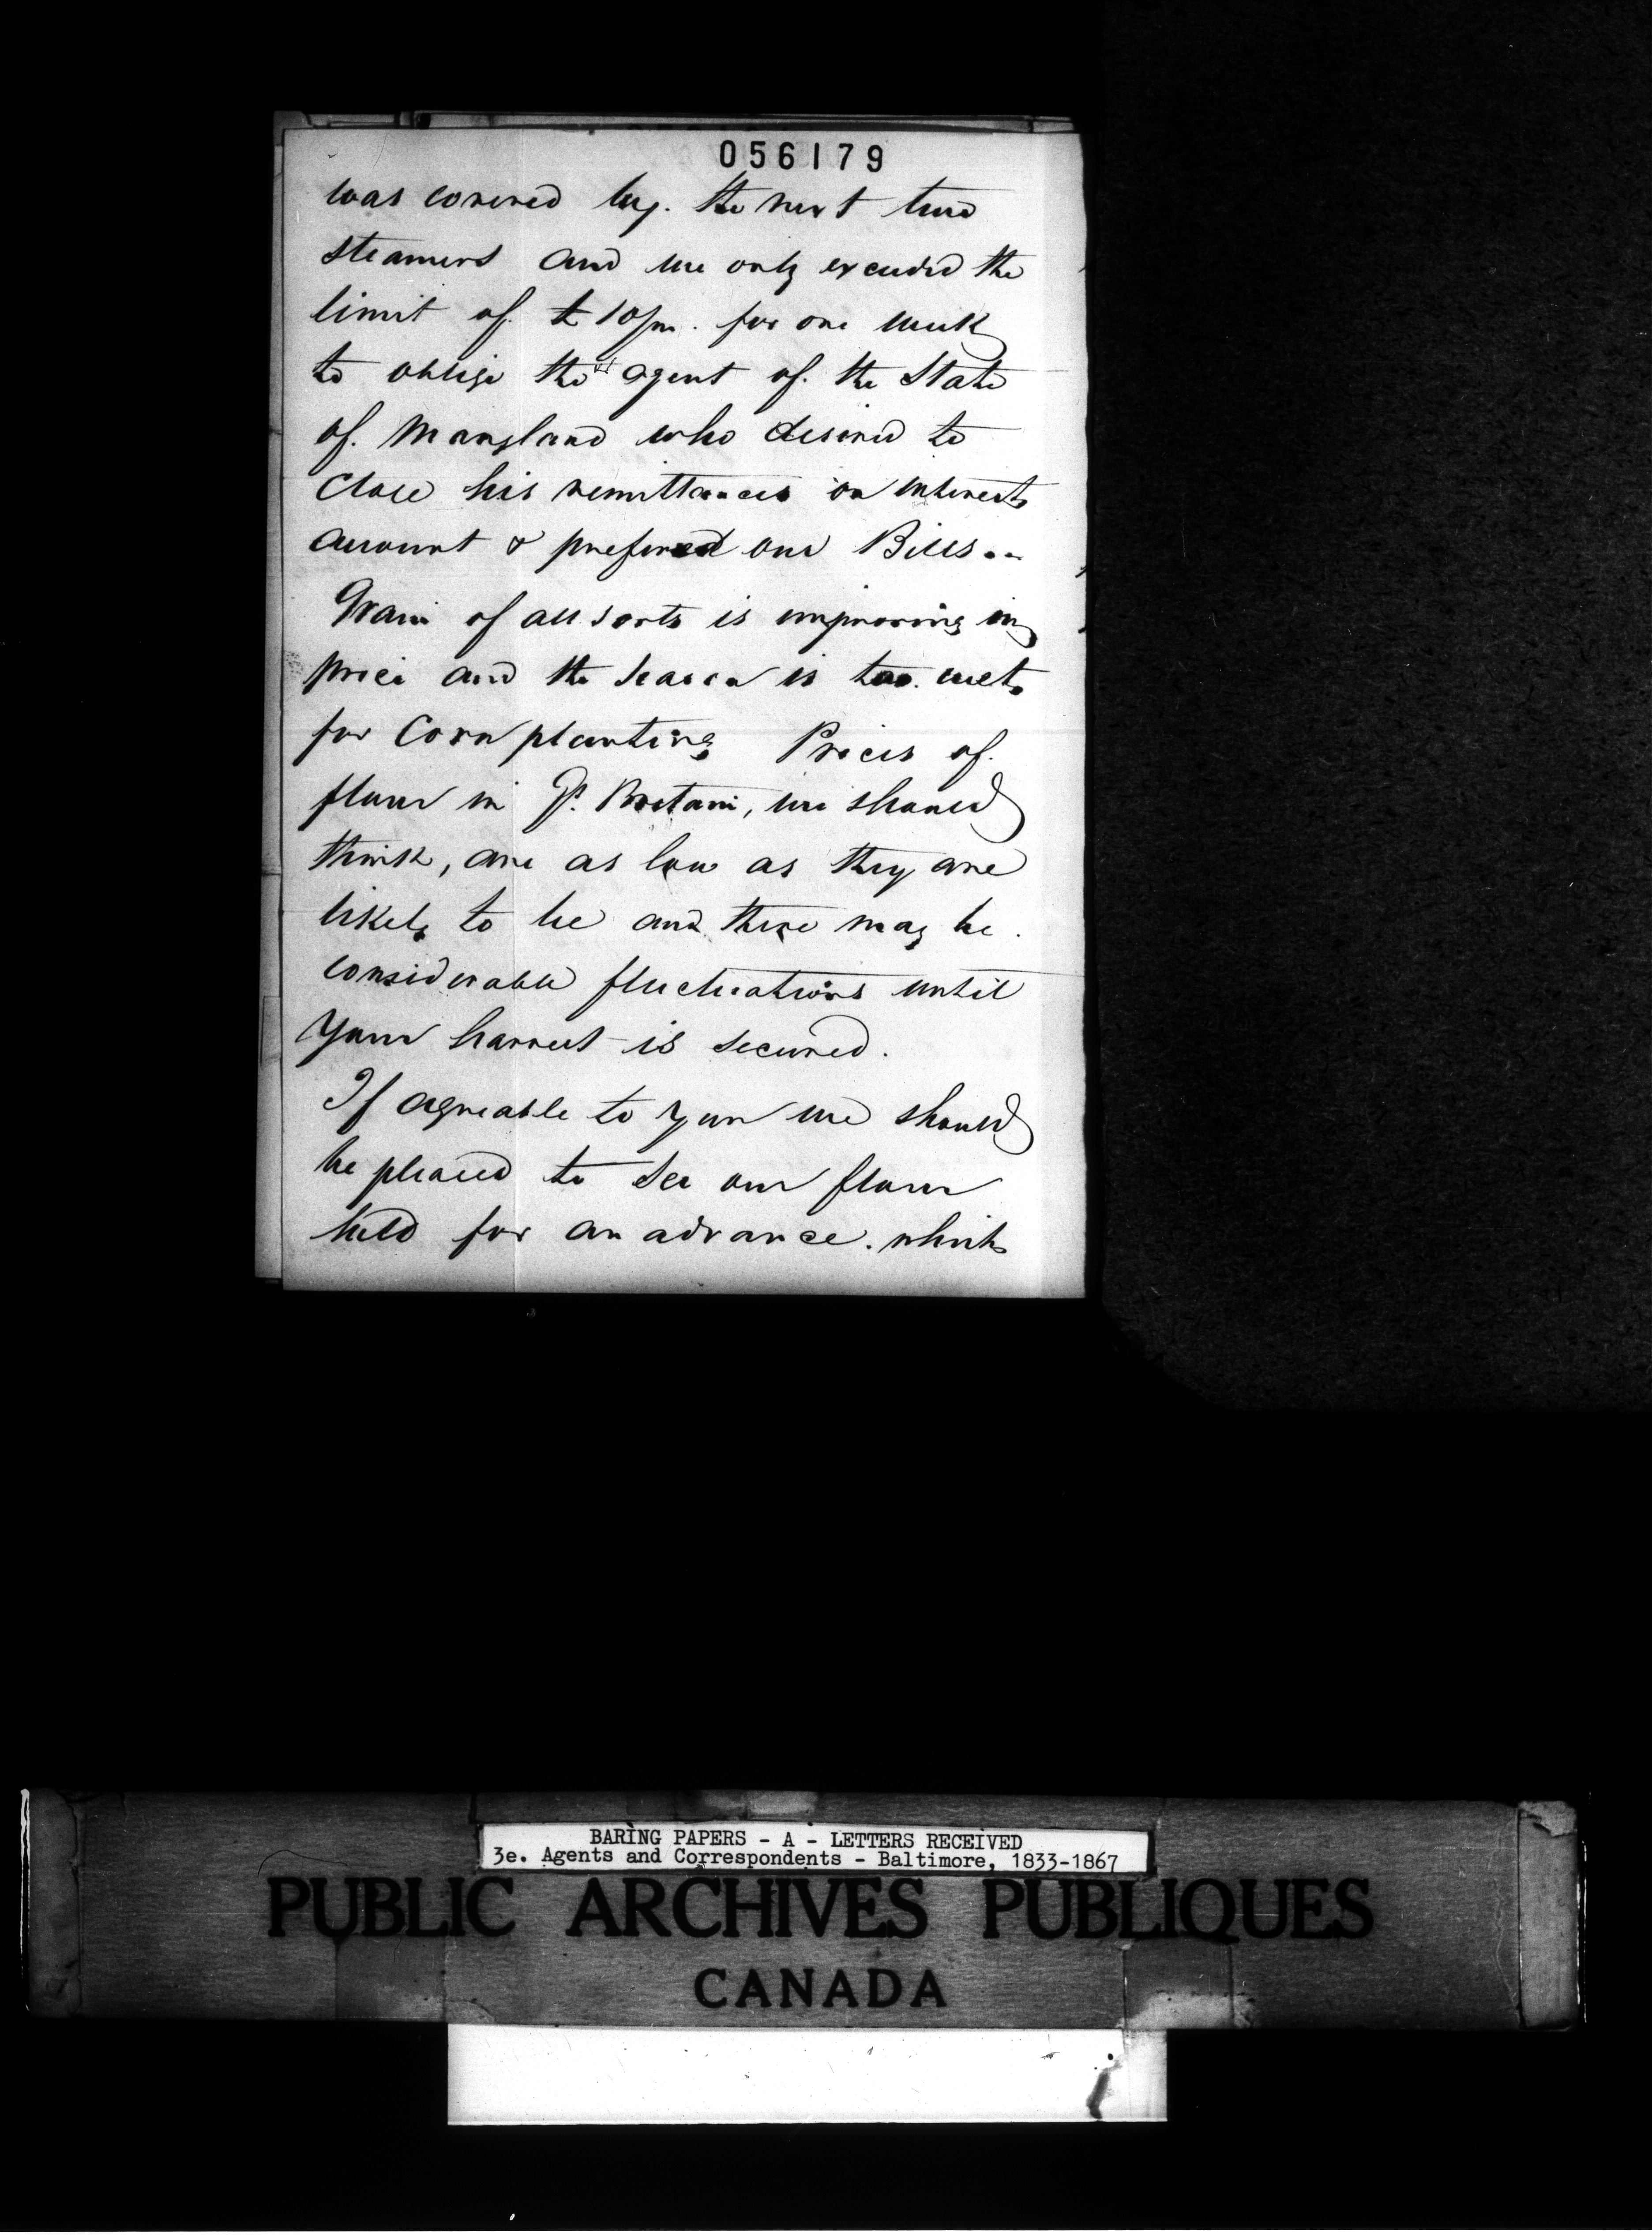 056179
was covered by. the next two
steamers and we only exceeded the
limit of. £ 10/m. for one week
to oblige the agent of. the State
of. Maryland who desired to
close his remittances on interest
account & prefered our Bills..
Grain of all sorts is improving in
price and the season is too. wet
for Corn planting Prices of.
flour in Gt. Britain, we should
think, are as low as they are
likely to be and there may be.
considerable fluctuations until
your harvest is secured.
If agreable to you we should
be pleased to see our flour
held for an advance. which
BARING PAPERS - A - LETTERS RECEIVED
3e. Agents and Correspondents - Baltimore, 1833-1867
PUBLIC ARCHIVES PUBLIQUES
CANADA